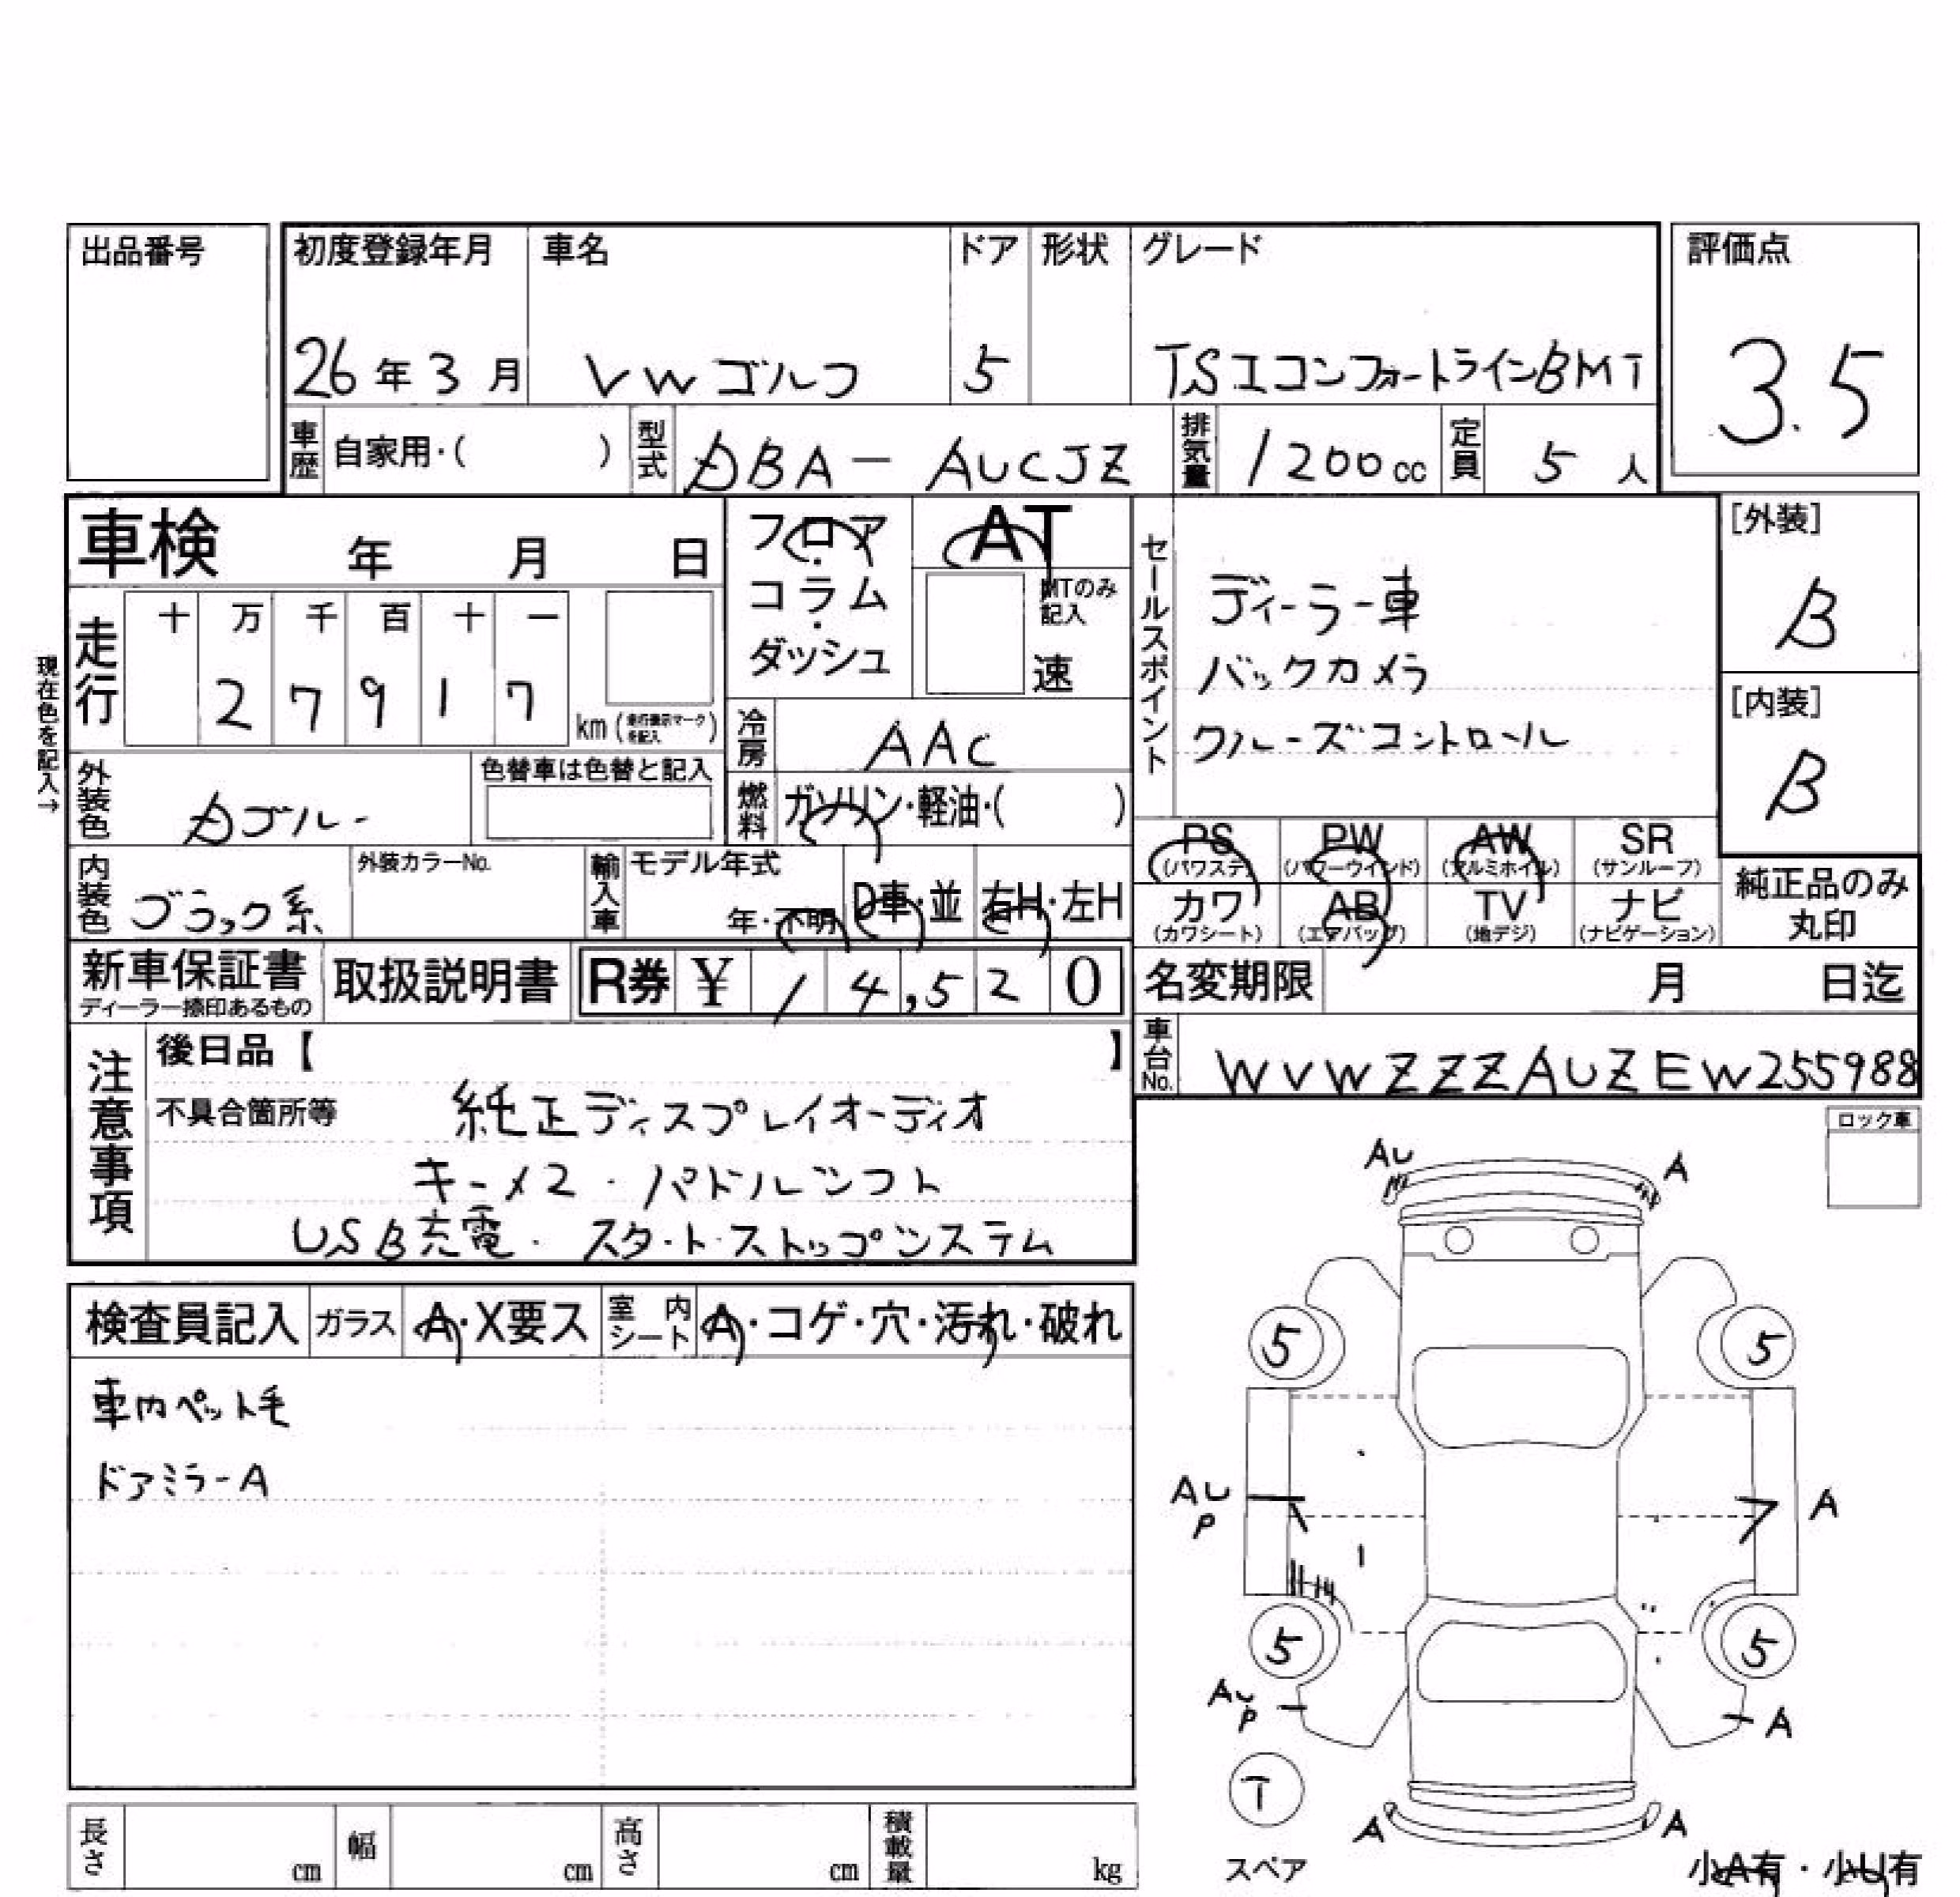 出品番号
初度登録年月 車名 ドア 形状 グレード 評価点
26年3月 VWゴルフ 5 TSIコンフォートラインBMT 3.5
車歴 自家用・( ) 型式 DBA-AUCJZ 排気量 1200cc 定員 5人
車検 年 月 日
フロア・コラム・ダッシュ
AT
MTのみ記入
速
セールスポイント
ディーラー車
バックカメラ
クルーズコントロール
[外装]
B
[内装]
B
現在色を記入→
走行 十 万 千 百 十 一
2 7 9 1 7 km(走行表示マークを記入)
冷房 AAC
外装色
色替車は色替と記入
燃料 ガソリン・軽油・( )
PS (パワステ) PW (パワーウインド) AW (アルミホイル) SR (サンルーフ)
カワ (カワシート) AB (エアバッグ) TV (地デジ) ナビ (ナビゲーション)
純正品のみ丸印
内装色 ブラック系 外装カラーNo. 輸入車 モデル年式 年・不明 D車・並 右H・左H
新車保証書 ディーラー捺印あるもの 取扱説明書 R券 ¥ 14,520
名変期限 月 日迄
車台No. WVWZZZAUZEW255988
注意事項
後日品【 】
不具合箇所等 純正ディスプレイオーディオ
キーメ2・パドルシフト
USB充電・スタートストップシステム
ロック車
検査員記入 ガラス A・X要ス 室内シート A・コゲ・穴・汚れ・破れ
車内ペット毛
ドアミラーA
AU A
5 5
AU P A
5 5
AU P A
T
スペア
A A
小A有・小U有
長さ cm 幅 cm 高さ cm 積載量 kg